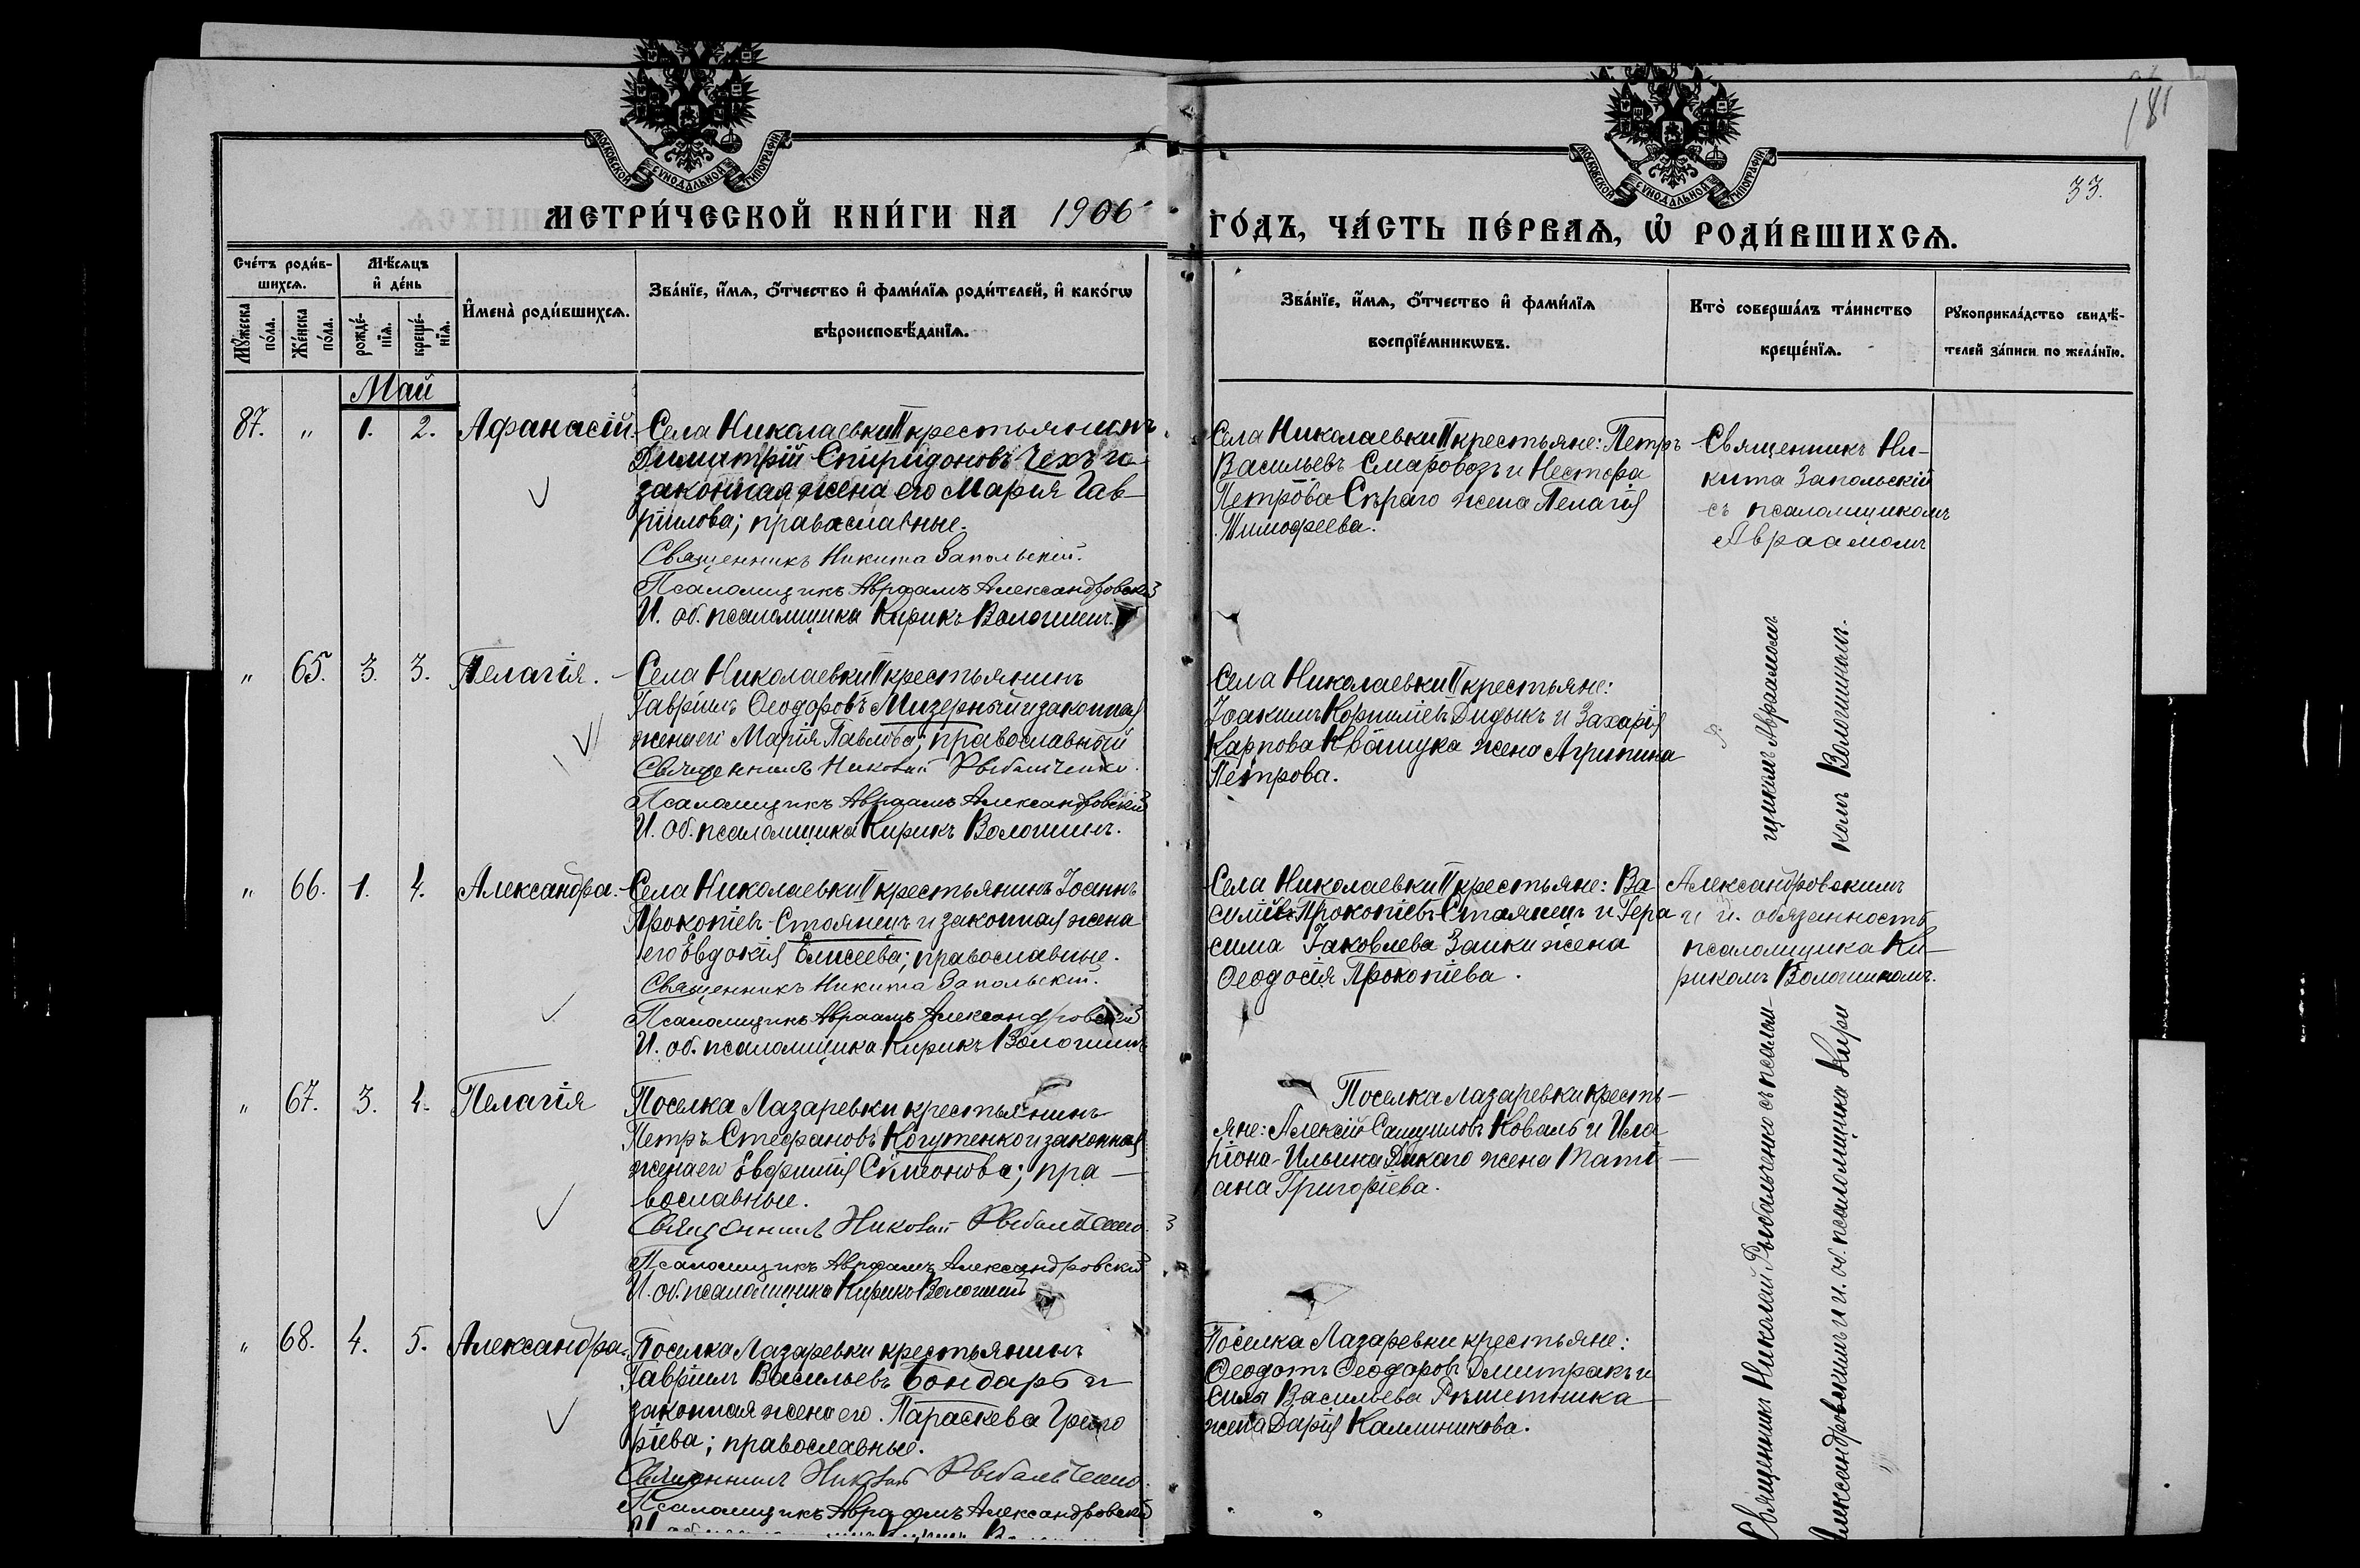 181
33.
МОСКОВСКОЙ СѴНОДАЛЬНОЙ ТИПОГРАФІИ
МОСКОВСКОЙ СѴНОДАЛЬНОЙ ТИПОГРАФІИ
МЕТРИ́ЧЕСКОЙ КНИ́ГИ НА 1906 ГО́ДЪ, ЧА́СТЬ ПЕ́РВАѦ, Ѡ҆ РОДИ́ВШИХСѦ.
Сче́тъ роди́в-
шихсѧ.
Мꙋ́жеска по́ла.
Же́нска по́ла.
Мѣ́сѧцъ
и҆ де́нь
рожде́-
нїѧ.
креще́-
нїѧ.
И҆мена̀ роди́вшихсѧ.
Зва́нїе, и҆́мѧ, ѻ҆́тчество и҆ фами́лїѧ роди́телей, и҆ како́гѡ
вѣроисповѣ́данїѧ.
Зва́нїе, и҆́мѧ, ѻ҆́тчество и҆ фами́лїѧ
воспрїе́мникѡвъ.
Кто̀ соверша́лъ та́инство
креще́нїѧ.
Рꙋкоприкла́дство свидѣ́-
телей за́писи по жела́нїю.
Май
87. " 1. 2. Афанасій.
Села Николаевки II крестьянинъ
Димитрій Спиридоновъ Чехъ и
законная жена его Марія Гав-
ріилова; православные.
Священникъ Никита Запольскій.
Псаломщикъ Авраамъ Александровскій
И. об. псаломщика Кирикъ Волошинъ.
Села Николаевки II крестьяне: Петръ
Васильевъ Смаровозъ и Нестора
Петрова Сѣраго жена Пелагія
Тимофеева.
Священникъ Ни-
кита Запольскій
съ псаломщикомъ
Авраамомъ
" 65. 3. 3. Пелагія.
Села Николаевки II крестьянинъ
Гавріилъ Ѳеодоровъ Мизерный и законная
жена его Марія Павлова; православный
Священникъ Николай Рыбальченко.
Псаломщикъ Авраамъ Александровскій
И. об. псаломщика Кирикъ Волошинъ.
Села Николаевки II крестьяне:
Іоакимъ Корниліевъ Дидыкъ и Захарія
Карпова Квашука жена Агрипина
Петрова.
" 66. 1. 4. Александра.
Села Николаевки II крестьянинъ Іоаннъ
Прокопіевъ Стоянецъ и законная жена
его Евдокія Елисеева; православные.
Священникъ Никита Запольскій.
Псаломщикъ Авраамъ Александровскій
И. об. псаломщика Кирикъ Волошинъ
Села Николаевки II крестьяне: Ва
силій Прокопіевъ Стоянецъ и Гера
сима Іаковлева Заики жена
Ѳеодосія Прокопіева.
Александровскимъ
и и. обязанность
псаломщика Ки-
рикомъ Волошиномъ.
" 67. 3. 4. Пелагія
Поселка Лазаревки крестьянинъ
Петръ Стефановъ Когутенко и законная
жена его Евфимія Симонова; пра-
вославные.
Священникъ Николай Рыбальченко.
Псаломщикъ Авраамъ Александровскій
И. об. псаломщика Кирикъ Волошинъ
Поселка Лазаревки кресть-
яне: Алексій Самуиловъ Коваль и Ила
ріона Ильина Дикаго жена Таті-
ана Григоріева.
" 68. 4. 5. Александра.
Поселка Лазаревки крестьянинъ
Гавріилъ Васильевъ Бондарь и
законная жена его Параскева Григо
ріева; православные.
Священникъ Николай Рыбальченко.
Псаломщикъ Авраамъ Александровскій
Поселка Лазаревки крестьяне:
Ѳеодотъ Ѳеодоровъ Дмитракъ и
Силы Васильева Рѣшетника
жена Дарія Калиникова.
Священникъ Николай Рыбальченко съ псалом-
щикомъ Авраамомъ
Александровскимъ и и. об. псаломщика Кири
комъ Волошиномъ.